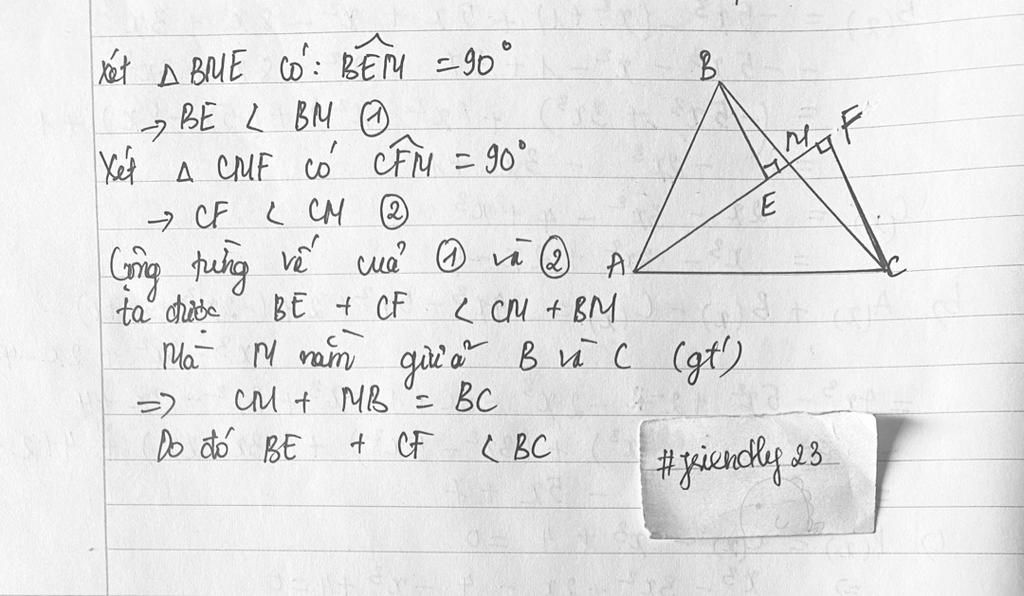 Xét Δ BME có: BÊM = 90°
→ BE < BM ①
Xét Δ CMF có CF̂M = 90°
→ CF < CM ②
Cộng từng vế của ① và ②
ta được BE + CF < CM + BM
Mà M nằm giữa B và C (gt)
=> CM + MB = BC
Do đó BE + CF < BC
B
M F
E
A C
#friendly 23